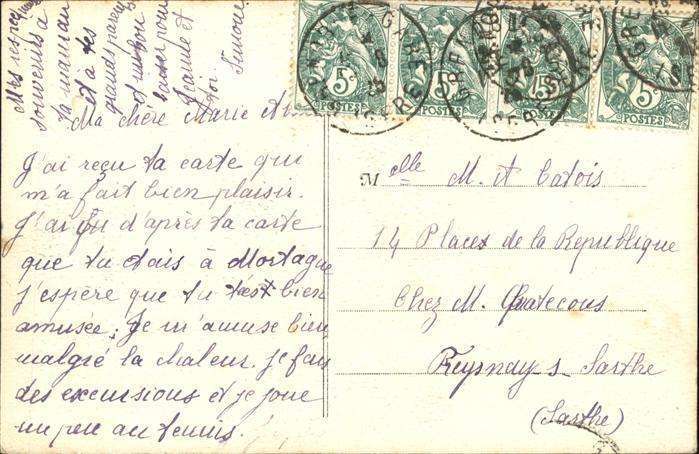 Ma chère Marie
J'ai reçu ta carte qui
m'a fait bien plaisir.
J'ai vu d'après ta carte
que tu étais à Mortagne
j'espère que tu t'est bien
amusée; Je m'amuse bien
malgré la chaleur. je fais
des excursions et je joue
un peu au tennis.
Mes respectueux
souvenirs à
ta maman
et à tes
grands parents
un bon
baiser pour
Jeanne et
toi Simone
5c 5c 5c 5c
POSTES POSTES POSTES POSTES
Melle M. A Catois
14 Place de la République
Chez M.
s Sarthe
(Sarthe)